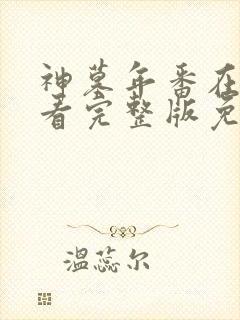 神墓年番在
看完整版免
温蕊尔